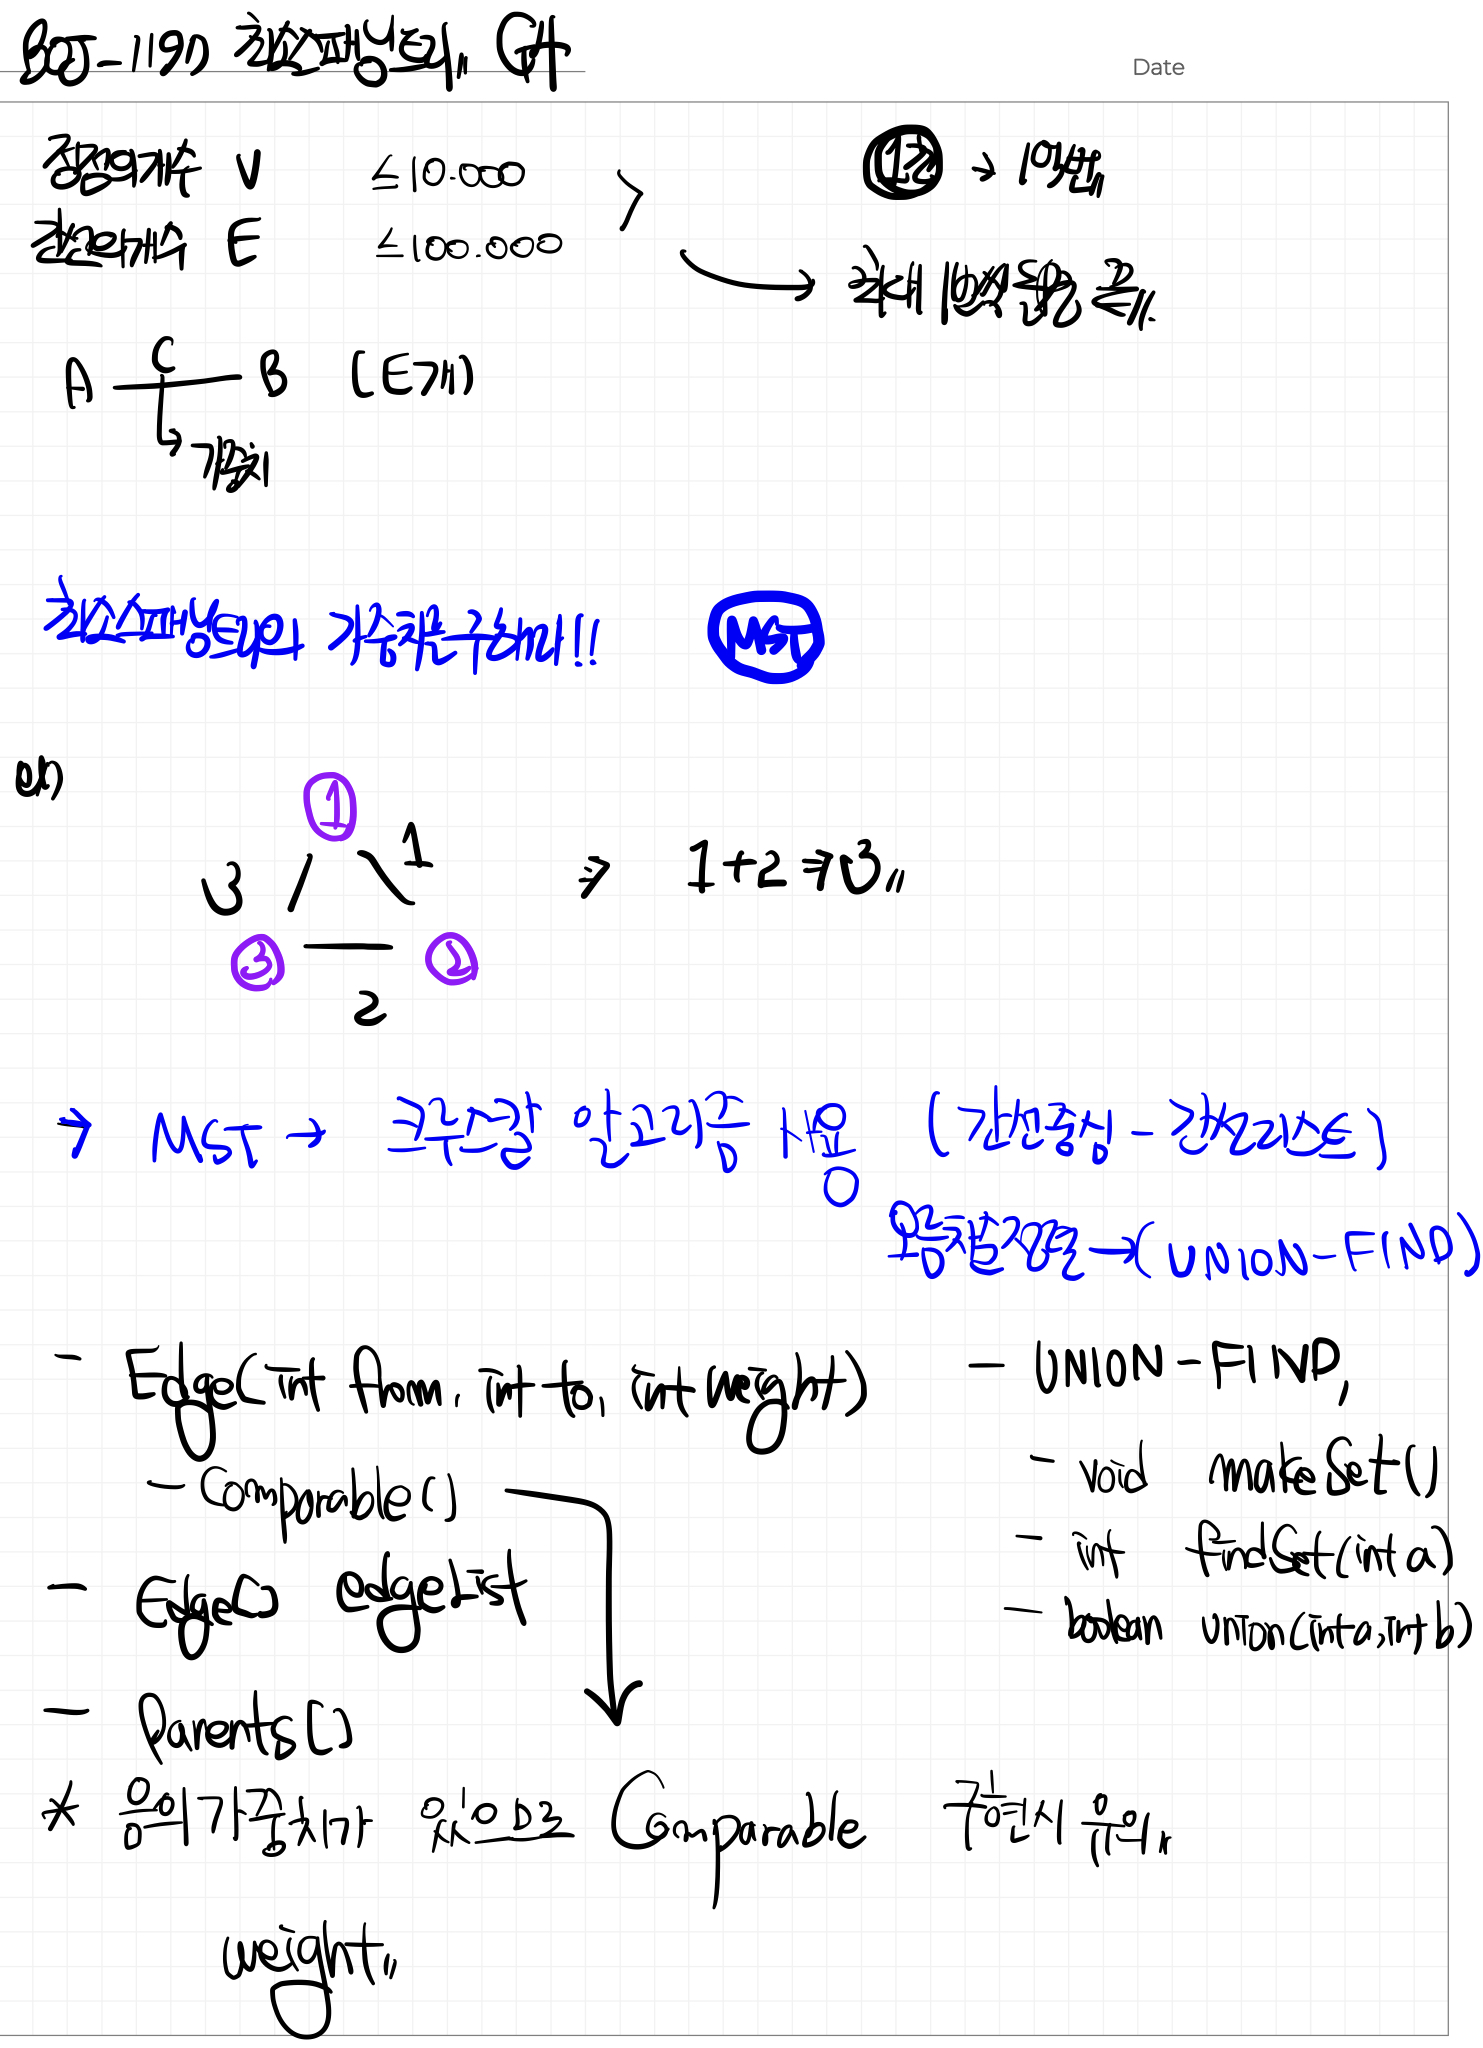 BOJ-1197) 최소스패닝트리,, G4
Date
정점의개수 V ≤ 10.000
간선의개수 E ≤ 100.000
1초 → 1억번,,
최대 10번씩
A C B (E개)
가중치
최소스패닝트리의 가중치를구하라!! MST
ex)
1
3 1
3 2
2
⇒ 1+2 ⇒ 3,,
→ MST → 크루스칼 알고리즘 사용 (간선중심 - 간선리스트)
→ (UNION-FIND)
- Edge(int from, int to, int weight)
- Comparable()
- Edge[] edgeList
- Parents[]
- UNION-FIND,
- void makeSet()
- int findSet(int a)
- boolean union(int a, int b)
* 음의 가중치가 있으므로 Comparable 구현시 유의,,
weight,,